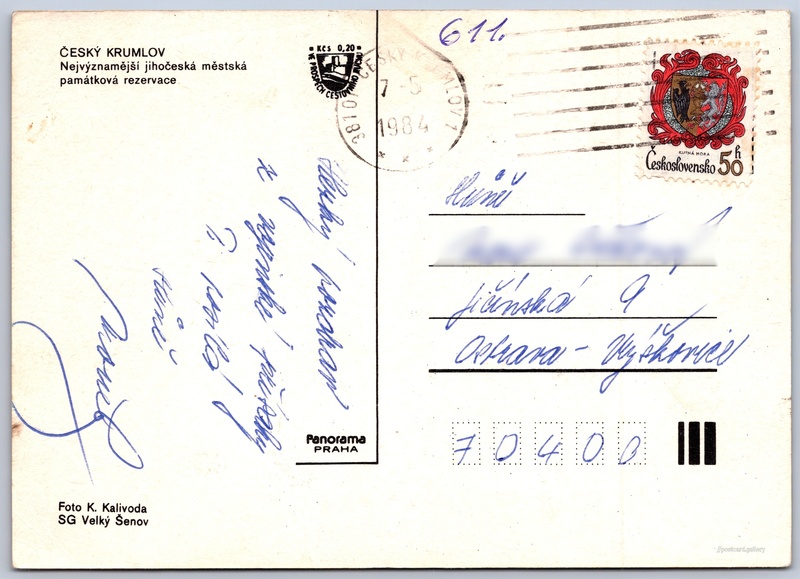 ČESKÝ KRUMLOV
Nejvýznamější jihočeská městská
památková rezervace
Kčs 0,20
VE PROSPĚCH CESTOVNÍHO RUCHU
381 01 ČESKÝ KRUMLOV 1
7-5
1984
611.
KUTNÁ HORA
Československo 50 h
Hezký pozdrav
z
Ti posílá
Jičínská 9
Ostrava - Výškovice
70400
Panorama
PRAHA
Foto K. Kalivoda
SG Velký Šenov